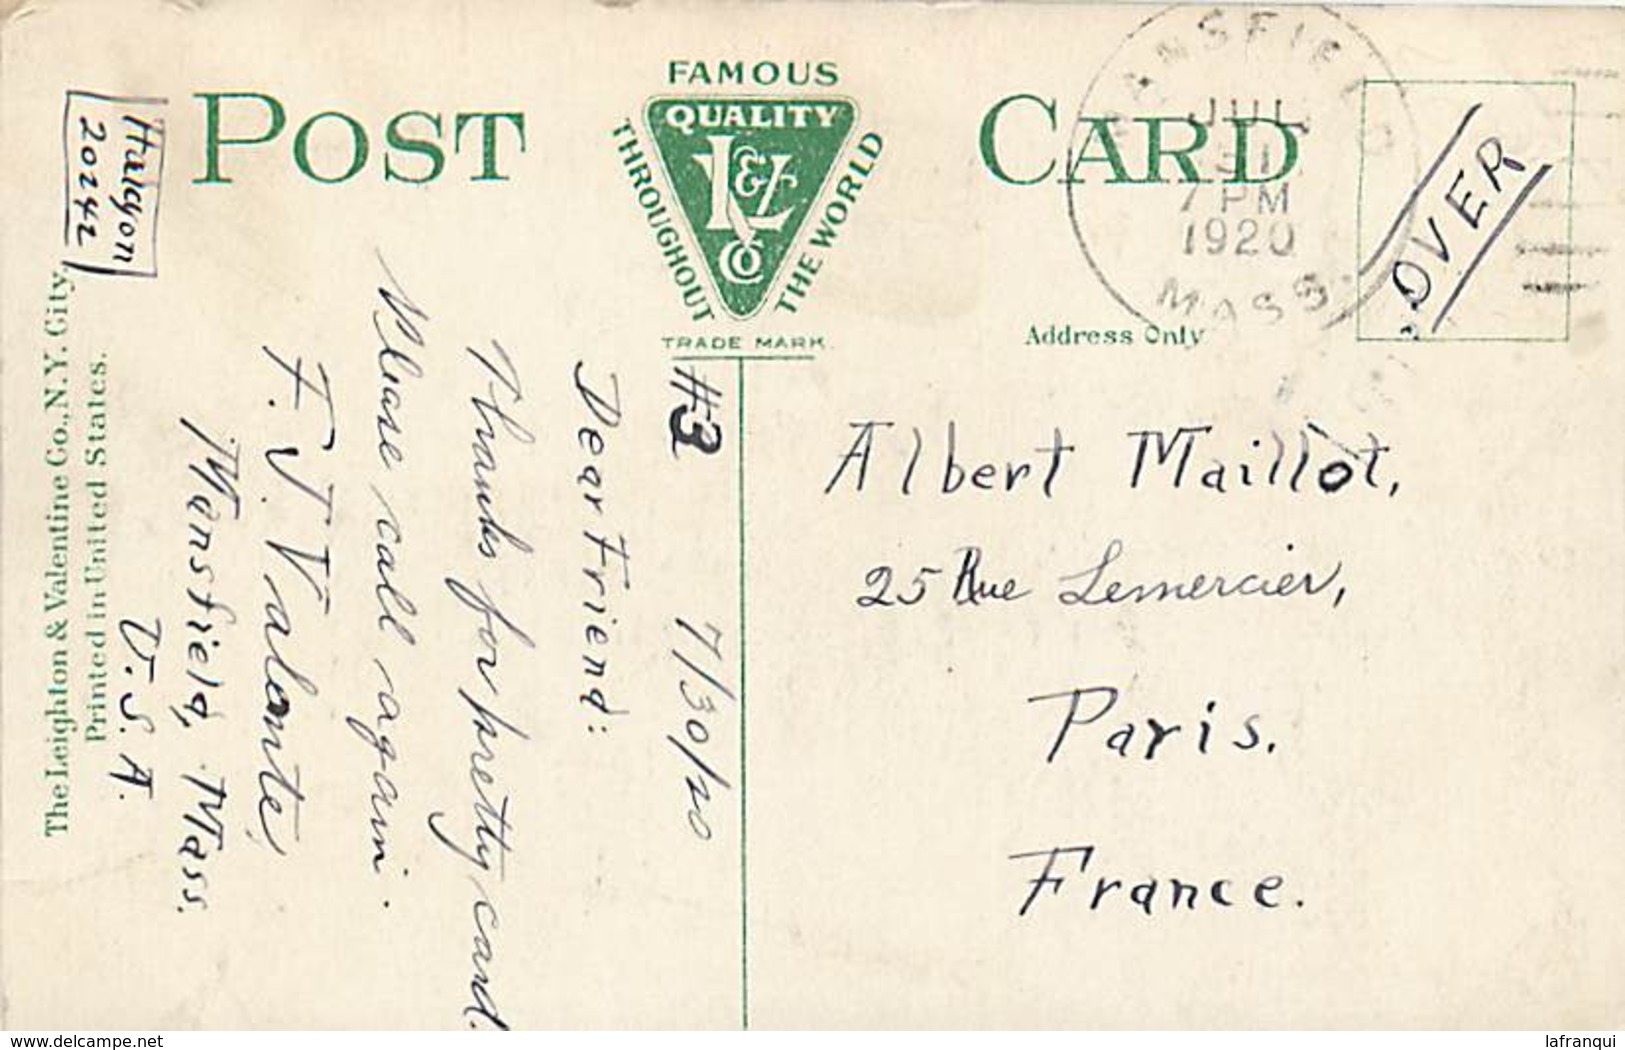 POST CARD
FAMOUS
QUALITY
THROUGHOUT
THE WORLD
V&L
CO
TRADE MARK.
MANSFIELD
JUL
31
7 PM
1920
MASS.
OVER
Address Only
Albert Maillot,
25 Rue Lemercier,
Paris.
France.
#3 7/30/20
Dear Friend:
Thanks for pretty card.
Please call again.
F. J. Valente,
Mansfield, Mass.
U.S.A.
Halcyon
20242
The Leighton & Valentine Co., N.Y. City,
Printed in United States.
delcampe.net
lafranqui